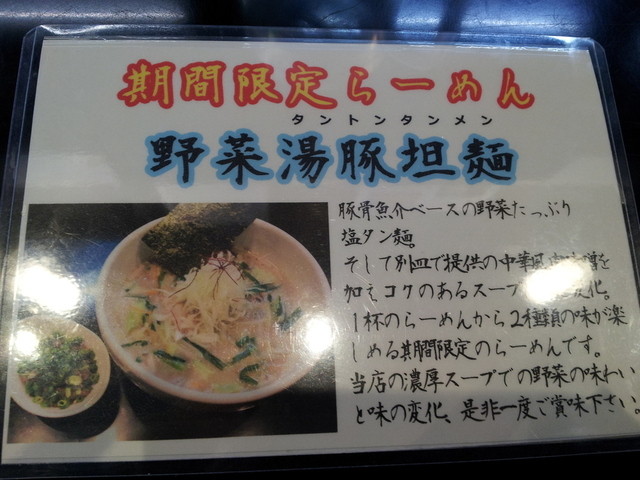 期間限定らーめん
タントンタンメン
野菜湯豚坦麺
豚骨魚介ベースの野菜たっぷり
塩タン麺。
そして別皿で提供の中華風を
加えコクのあるスープ変化。
1杯のらーめんから2種類の味が楽
しめる期間限定のらーめんです。
当店の濃厚スープでの野菜の味わい
と味の変化、是非一度ご賞味下さい。